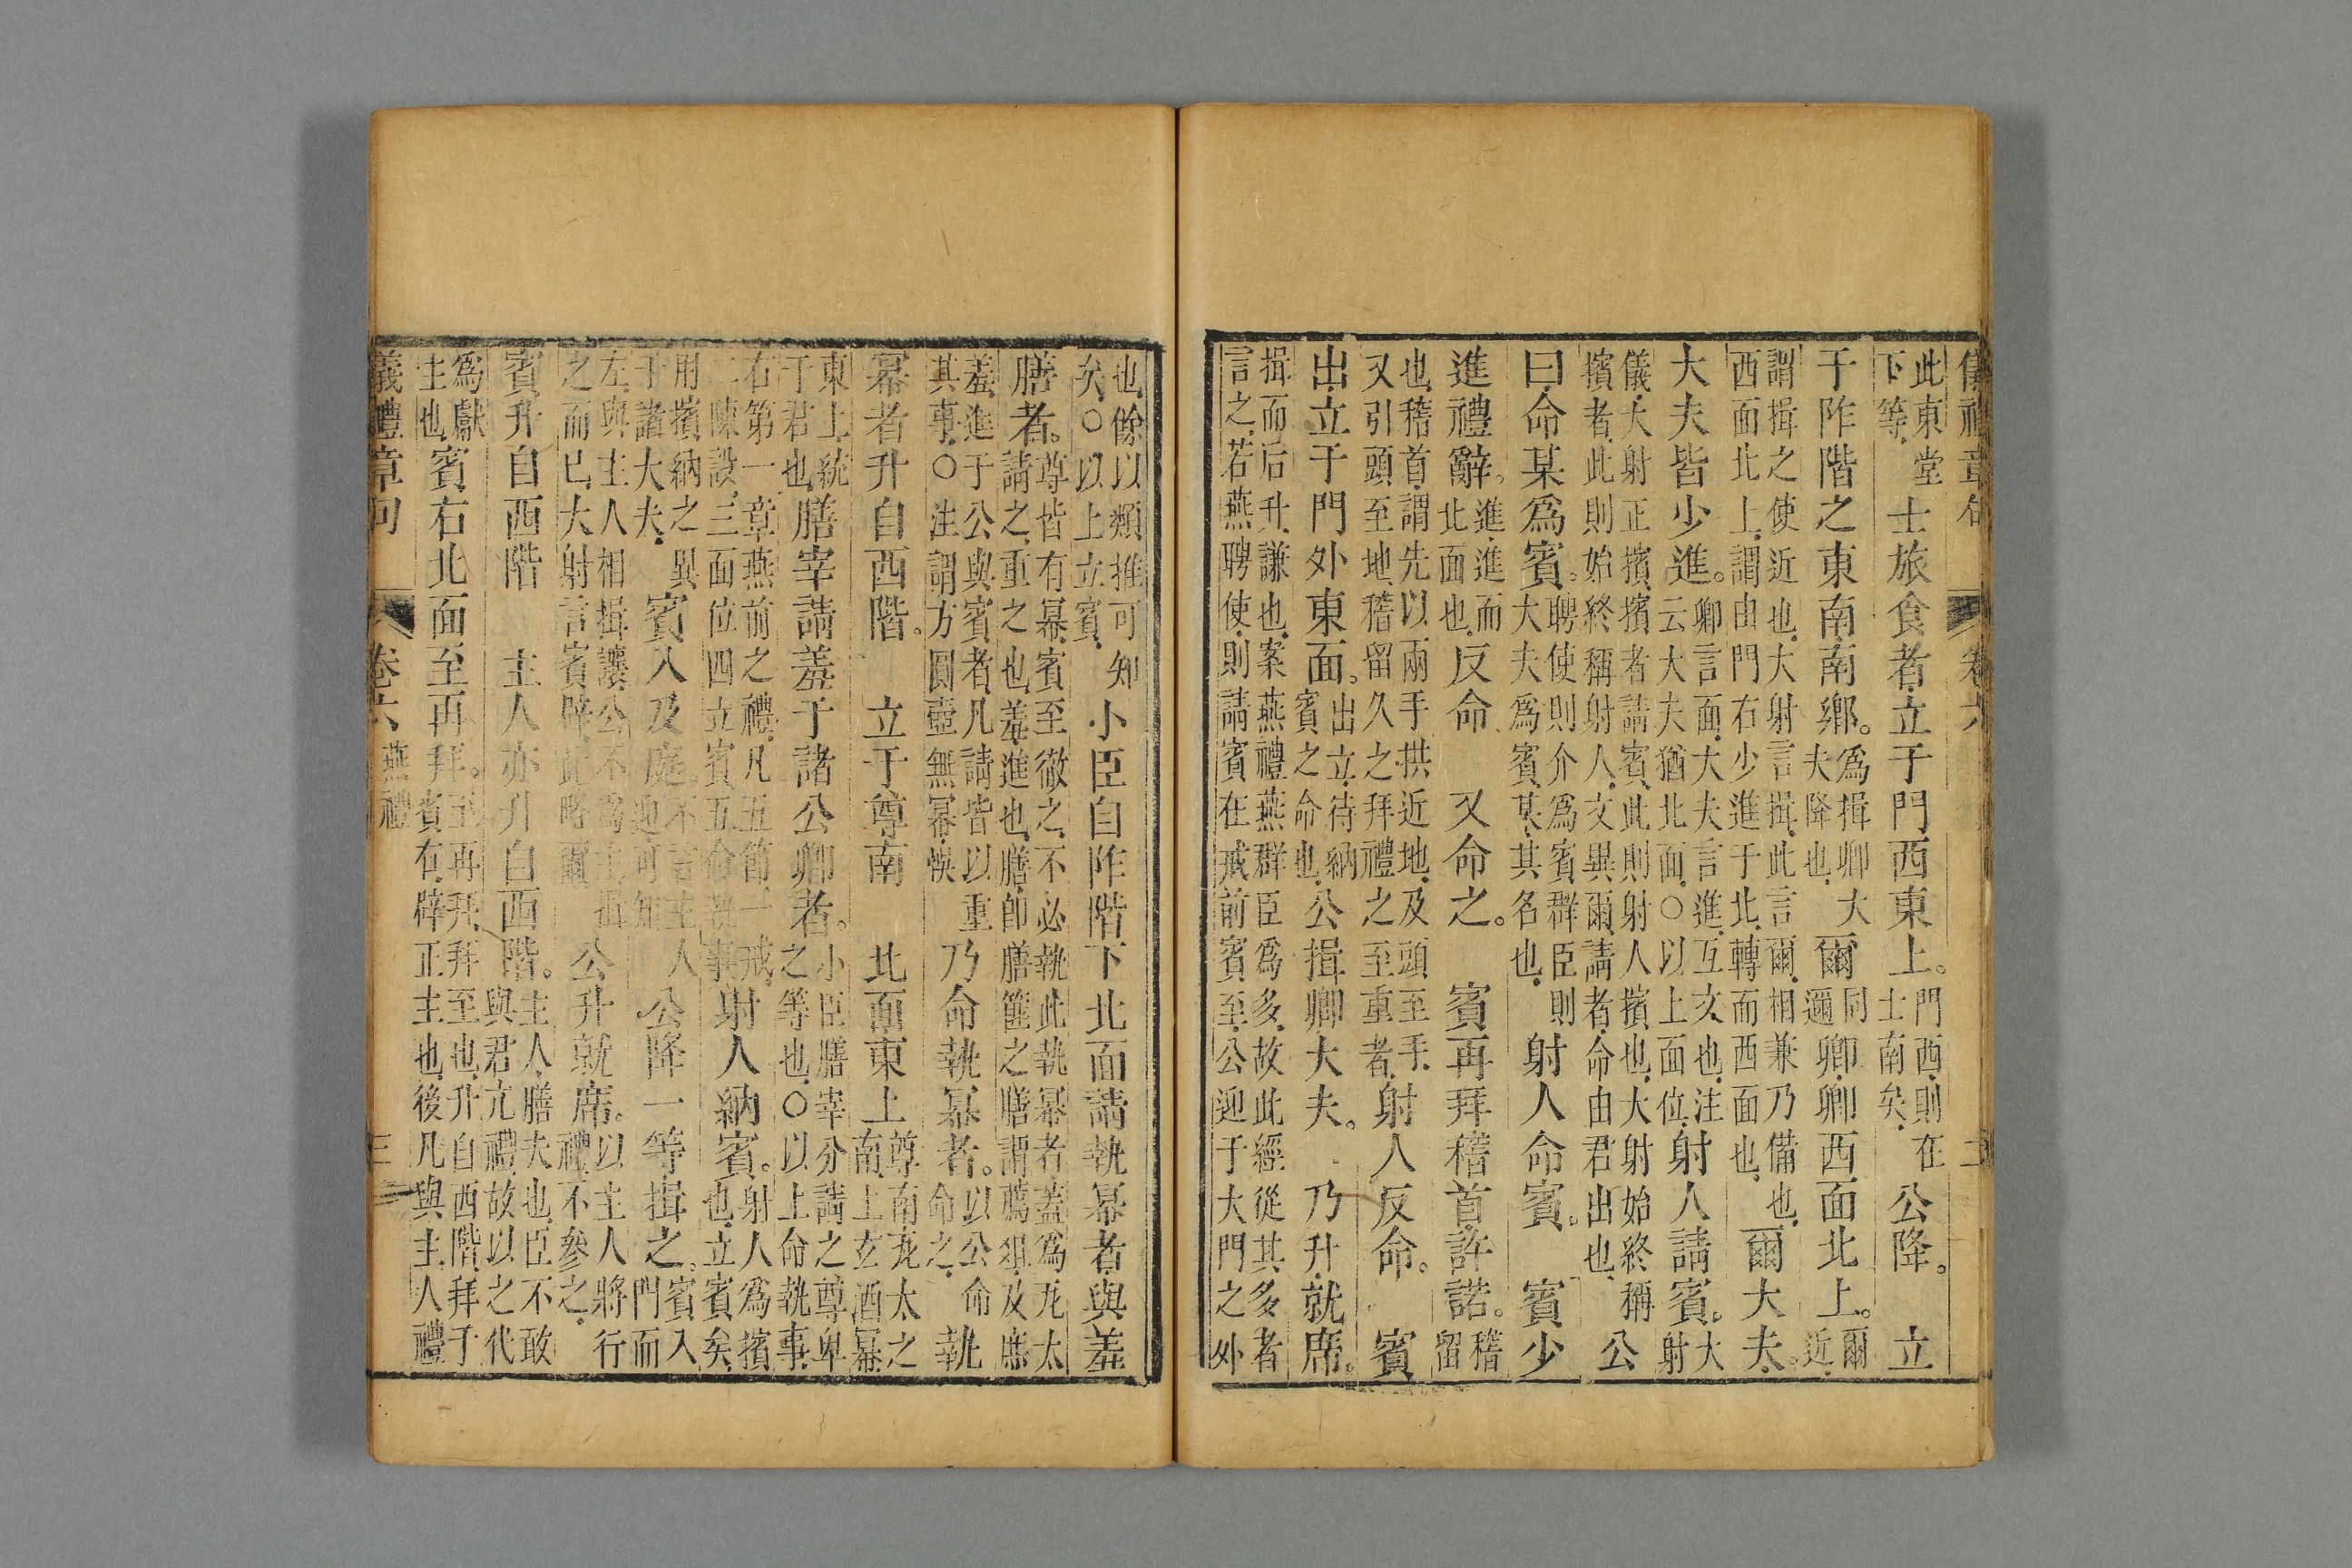 儀禮章句 卷六 二
此東堂下等士旅食者立于門西東上。門西則在士南矣公降。立
于阼階之東南南鄉。爲揖卿大夫降也爾同邇卿卿西面北上。爾近
謂揖之使近也大射言揖此言爾相兼乃備也西面北上謂由門右少進于北轉而西面也爾大夫。
大夫皆少進。卿言面大夫言進互文也注云大夫猶北面○以上面位射人請賓。大射
儀大射正擯擯者請賓此則射人擯也大射始終稱擯者此則始終稱射人文異爾請者命由君出也公
曰命某爲賓。聘使則介爲賓群臣則大夫爲賓某其名也射人命賓。賓少
進禮辭。進進而北面也反命又命之。賓再拜稽首許諾。稽留
也稽首謂先以兩手拱近地及頭至手又引頭至地稽留久之拜禮之至重者射人反命。賓
出立于門外東面。出立待納賓之命也公揖卿大夫。乃升就席。
揖而后升謙也案燕禮燕群臣爲多故此經從其多者言之若燕聘使則請賓在戒前賓至公迎于大門之外
也餘以類推可知矣○以上立賓小臣自阼階下北面請執冪者與羞
膳者。尊皆有冪賓至徹之不必執此執冪者蓋爲瓦太請之重之也羞進也膳卽膳篚之膳謂薦俎及庶
羞進于公與賓者凡請皆以重其事○注謂方圓壺無冪悞乃命執冪者。以公命命之執
冪者升自西階。立于尊南北面東上尊南瓦太之南上玄酒冪
東上統于君也膳宰請羞于諸公卿者。小臣膳宰分請之尊卑之等也○以上命執事
右第一章燕前之禮凡五節一戒二陳設三面位四立賓五命執事射人納賓。射人爲擯也立賓矣
用擯納之異于諸大夫賓入及庭。不言主人迎可知公降一等揖之。賓入門而
左與主人相揖讓公不爲主揖之而已大射言賓辟此略爾公升就席。以主人將行禮不參之
賓升自西階主人亦升自西階。主人膳夫也臣不敢與君亢禮故以之代
爲獻主也賓右北面至再拜。至再拜拜至也升自西階拜于賓有辟正主也後凡與主人禮
儀禮章句 卷六 燕禮 三